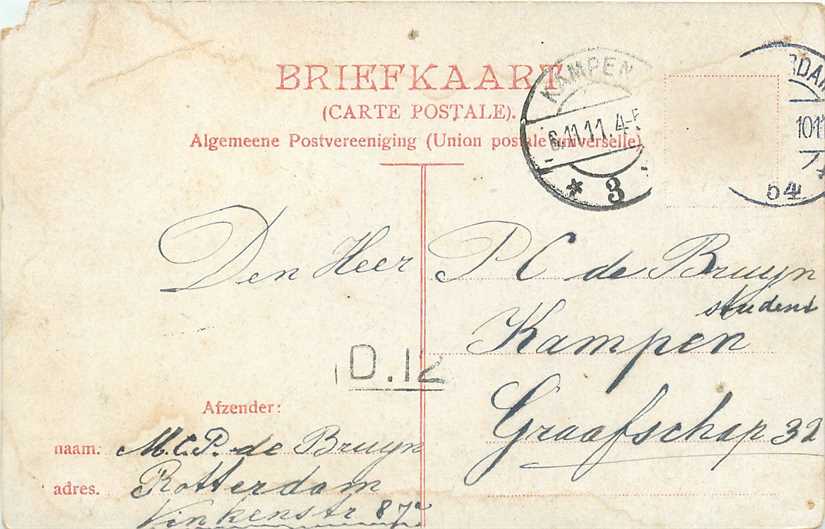 BRIEFKAART
(CARTE POSTALE).
Algemeene Postvereeniging (Union postale universelle)
KAMPEN
6.11.11.4-5
* 3
RDAM
1011
54
Den Heer P C de Bruyn
student
Kampen
Graafschap 32
D.12
Afzender:
naam. M.C.P. de Bruyn
adres. Rotterdam
Vinkenstr 87a